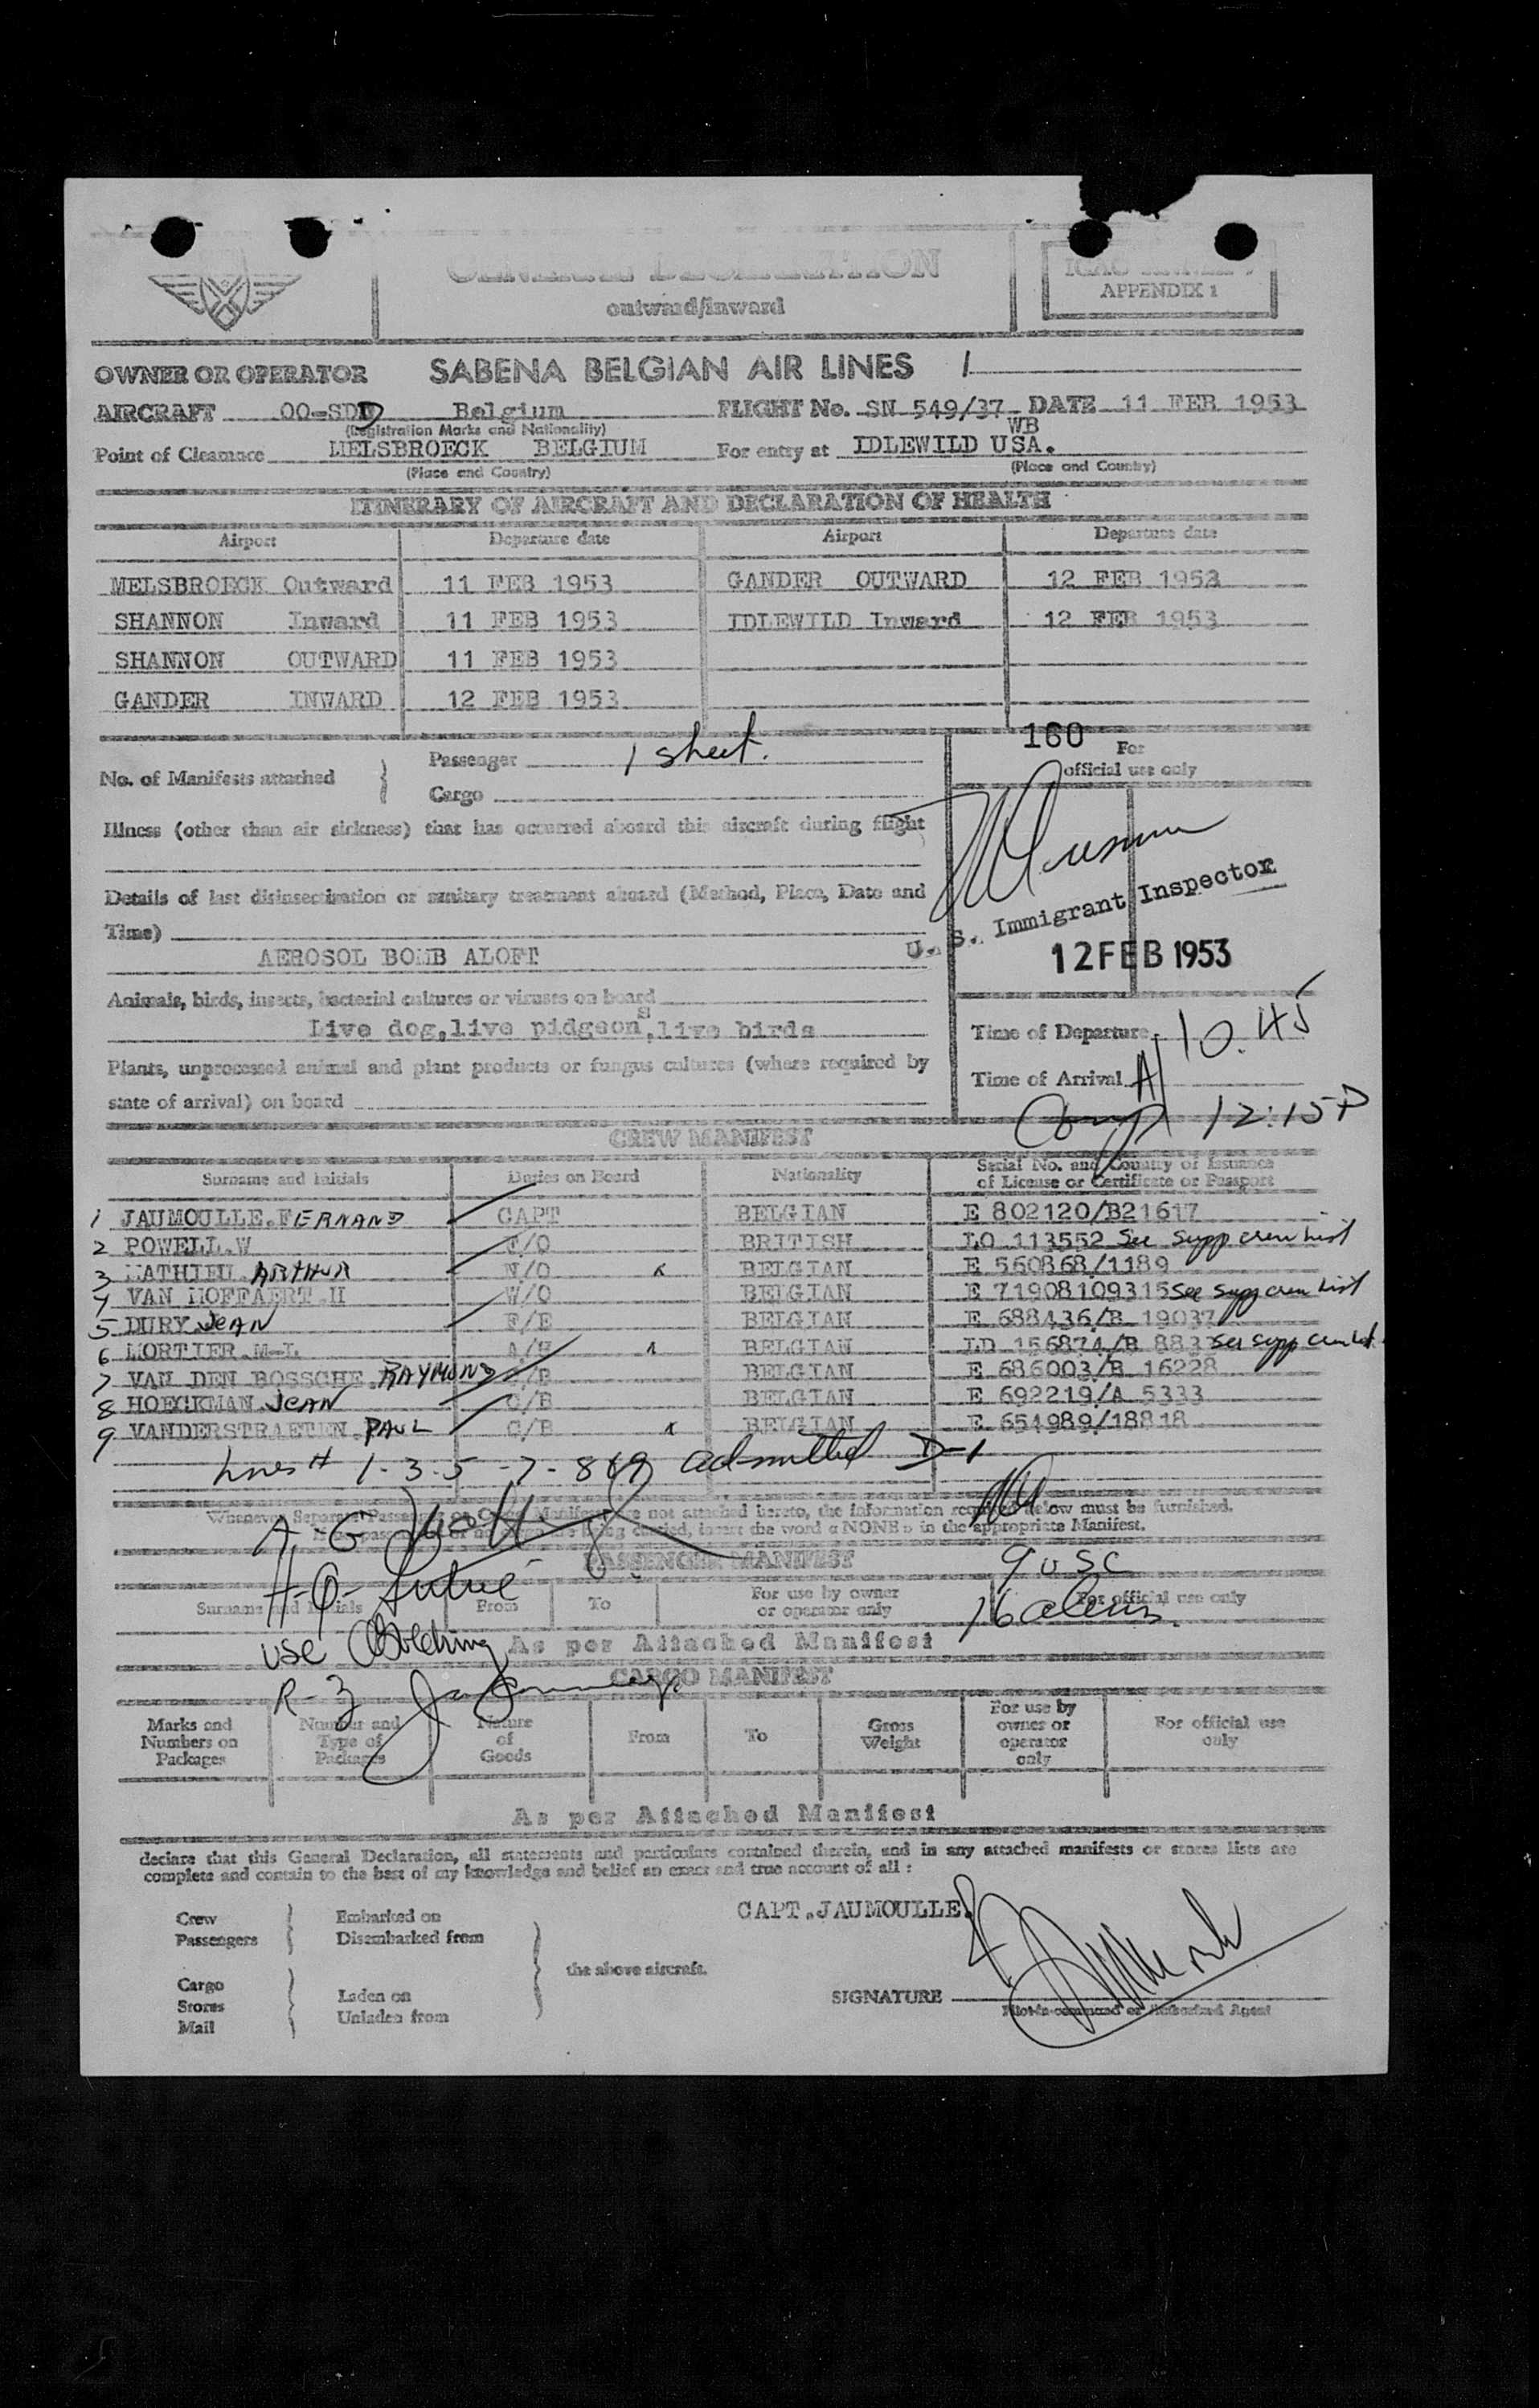 GENERAL DECLARATION
outward/inward
ICAO ANNEX 9
APPENDIX 1
OWNER OR OPERATOR SABENA BELGIAN AIR LINES 1
AIRCRAFT OO-SDD Belgium FLIGHT No. SN 549/37 DATE 11 FEB 1953
(Registration Marks and Nationality) WB
Point of Clearance MELSBROECK BELGIUM For entry at IDLEWILD USA.
(Place and Country) (Place and Country)
ITINERARY OF AIRCRAFT AND DECLARATION OF HEALTH
Airport Departure date Airport Departure date
MELSBROECK Outward 11 FEB 1953 GANDER OUTWARD 12 FEB 1953
SHANNON Inward 11 FEB 1953 IDLEWILD Inward 12 FEB 1953
SHANNON OUTWARD 11 FEB 1953
GANDER INWARD 12 FEB 1953
160 For official use only
No. of Manifests attached } Passenger 1 sheet.
Cargo
Illness (other than air sickness) that has occurred aboard this aircraft during flight
Details of last disinsectization or sanitary treatment aboard (Method, Place, Date and
Time)
U. S. Immigrant Inspector
AEROSOL BOMB ALOFT
12 FEB 1953
Animals, birds, insects, bacterial cultures or viruses on board
Live dog,live pidgeons,live birds
Time of Departure 10.45
Plants, unprocessed animal and plant products or fungus cultures (where required by
Time of Arrival A
state of arrival) on board
12:15P
CREW MANIFEST
Surname and Initials Duties on Board Nationality Serial No. and Country of Issuance
of License or Certificate or Passport
1 JAUMOULLE.FERNAND CAPT BELGIAN E 802120/B21617
2 POWELL.W F/O BRITISH LO 113552 See supp crew list
3 MATHIEU ARTHUR N/O x BELGIAN E 560868/1189
4 VAN HOFFAERT.H W/O BELGIAN E 71908109315 See supp crew list
5 DURY JEAN F/E BELGIAN E 688436/B 19037
6 MORTIER.M-L A/H x BELGIAN LD 156874/B 883 see supp crew list
7 VAN DEN BOSSCHE.RAYMOND BELGIAN E 686003/B 16228
8 HOECKMAN JEAN C/B BELGIAN E 692219/A 5333
9 VANDERSTRAETEN.PAUL C/B x BELGIAN E 654989/18818
Lines # 1-3-5-7-8&9 admitted D-1
Whenever Separate Passenger or Cargo Manifests are not attached hereto, the information required below must be furnished.
carried, insert the word « NONE » in the appropriate Manifest.
A. G.
PASSENGER MANIFEST
9 USC
16 aliens
H-Q-
Surname and Initials From To For use by owner or operator only For official use only
As per Attached Manifest
USC
CARGO MANIFEST
R-3
Marks and Numbers on Packages Number and Type of Packages Nature of Goods From To Gross Weight For use by owner or operator only For official use only
As per Attached Manifest
declare that this General Declaration, all statements and particulars contained therein, and in any attached manifests or stores lists are
complete and contain to the best of my knowledge and belief an exact and true account of all :
CAPT.JAUMOULLE.
Crew
Passengers } Embarked on
Disembarked from
the above aircraft.
Cargo
Stores
Mail } Laden on
Unladen from
SIGNATURE
Pilot-in-command or Authorized Agent